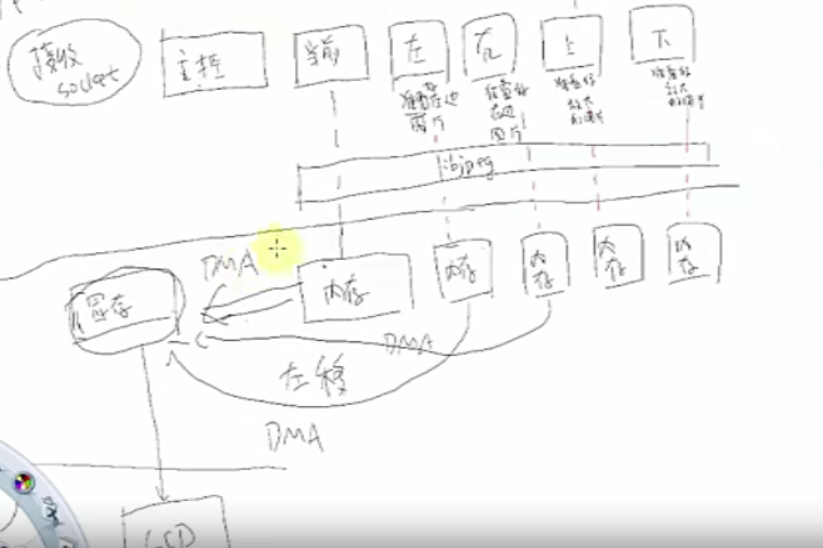 接收
socket
主控
当前
左
右
上
下
准备左边
图片
准备好
右边
图片
准备好
放大
的图片
准备好
放大
的图片
libjpeg
DMA
显存
内存
内存
内存
内存
内存
DMA
左移
DMA
LCD